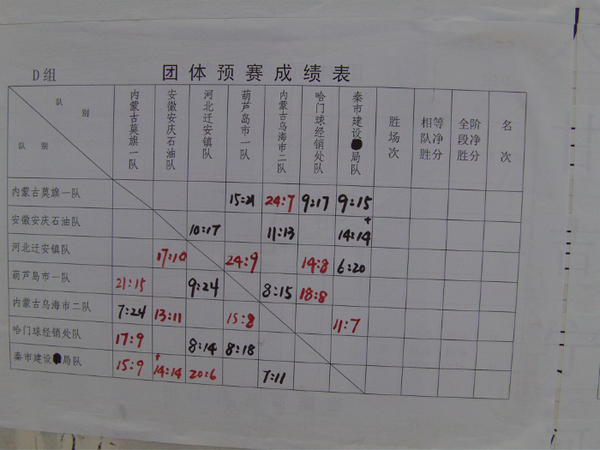 D组 团体预赛成绩表
队 别 内蒙古莫旗一队 安徽安庆石油队 河北迁安镇队 葫芦岛市一队 内蒙古乌海市二队 哈门球经销处队 秦市建设局队 胜场次 相等队净胜分 全阶段净胜分 名次
队 别
内蒙古莫旗一队 15:21 24:7 9:17 9:15
安徽安庆石油队 10:17 11:13 14:14+
河北迁安镇队 17:10 24:9 14:8 6:20
葫芦岛市一队 21:15 9:24 8:15 18:8
内蒙古乌海市二队 7:24 13:11 15:8 11:7
哈门球经销处队 17:9 8:14 8:18
秦市建设局队 15:9 +14:14 20:6 7:11